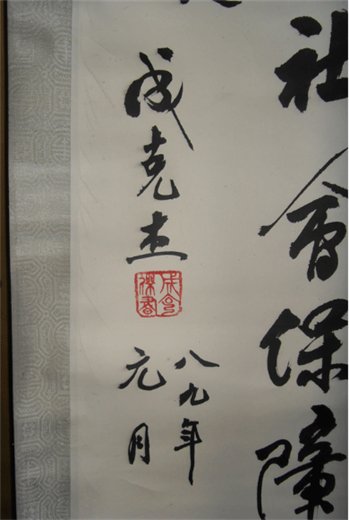 社會保障
成克杰
八九年
元月